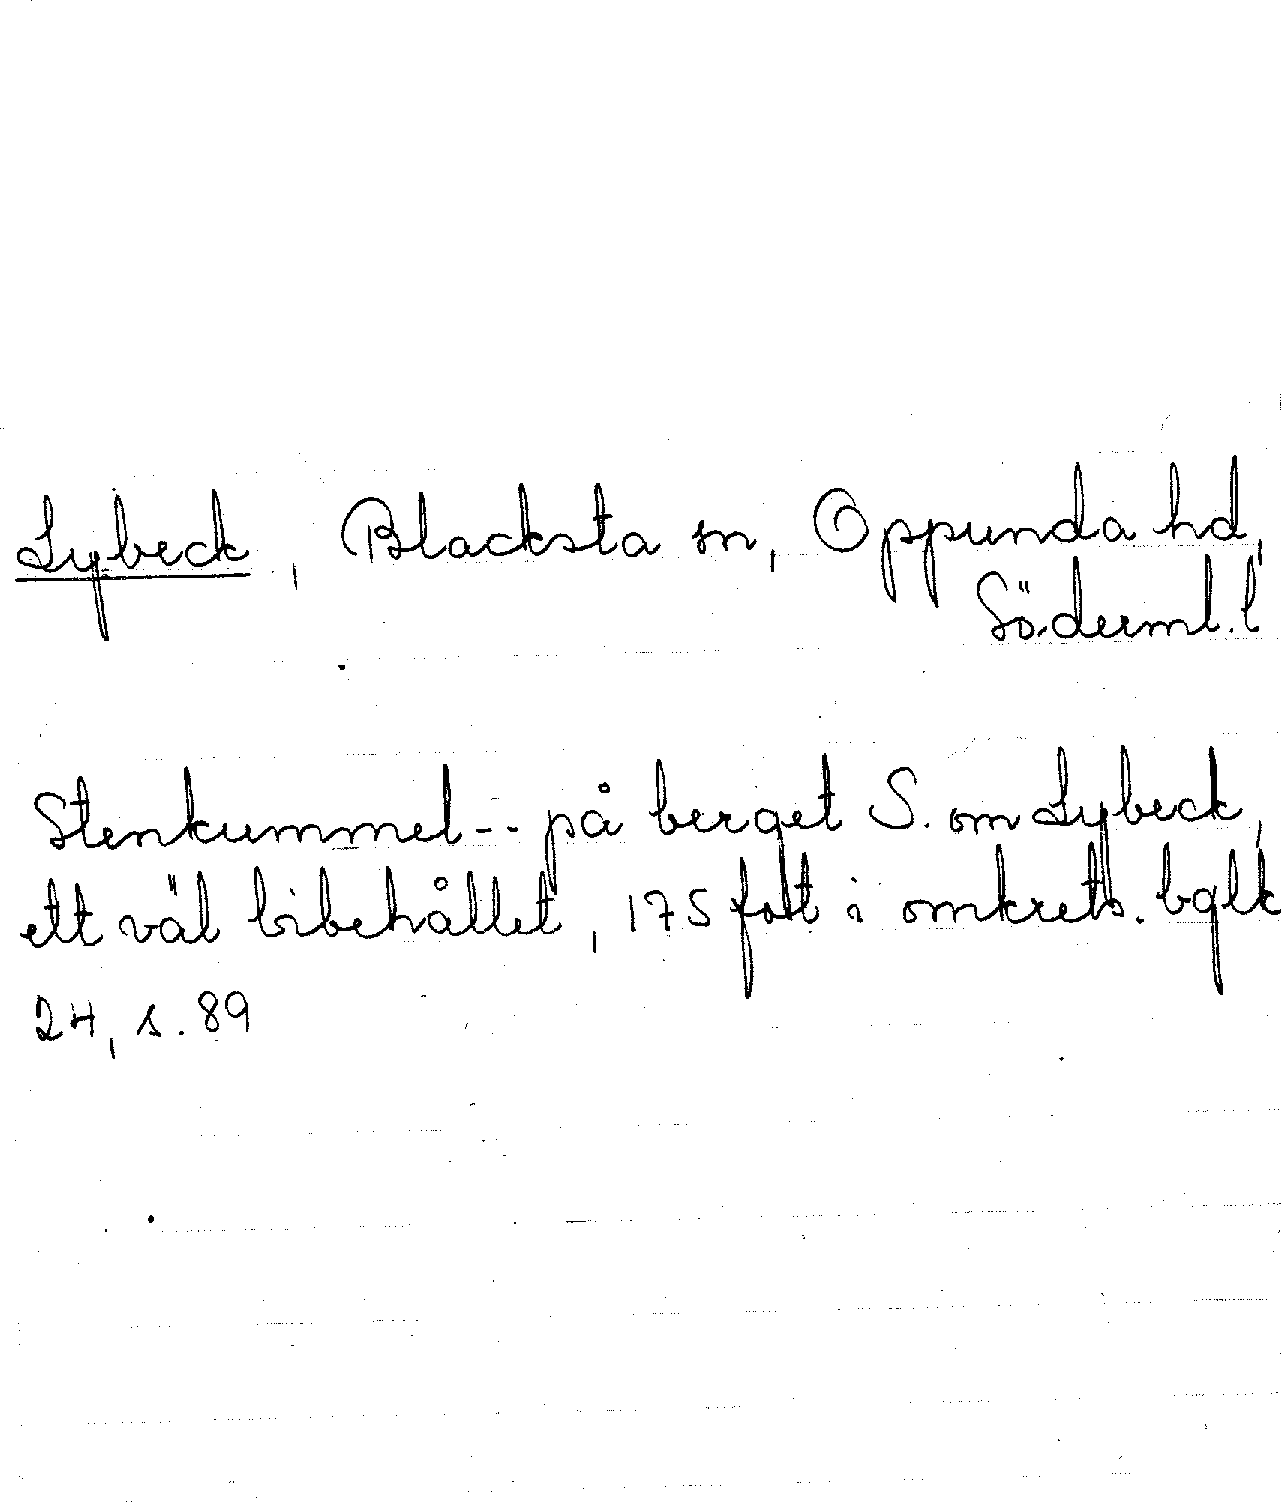 Lybeck, Blacksta sn, Oppunda hd,
Söderml. l
Stenkummel -- på berget S. om Lybeck,
ett väl bibehållet, 175 fott i omkrets. bglk
24, s. 89